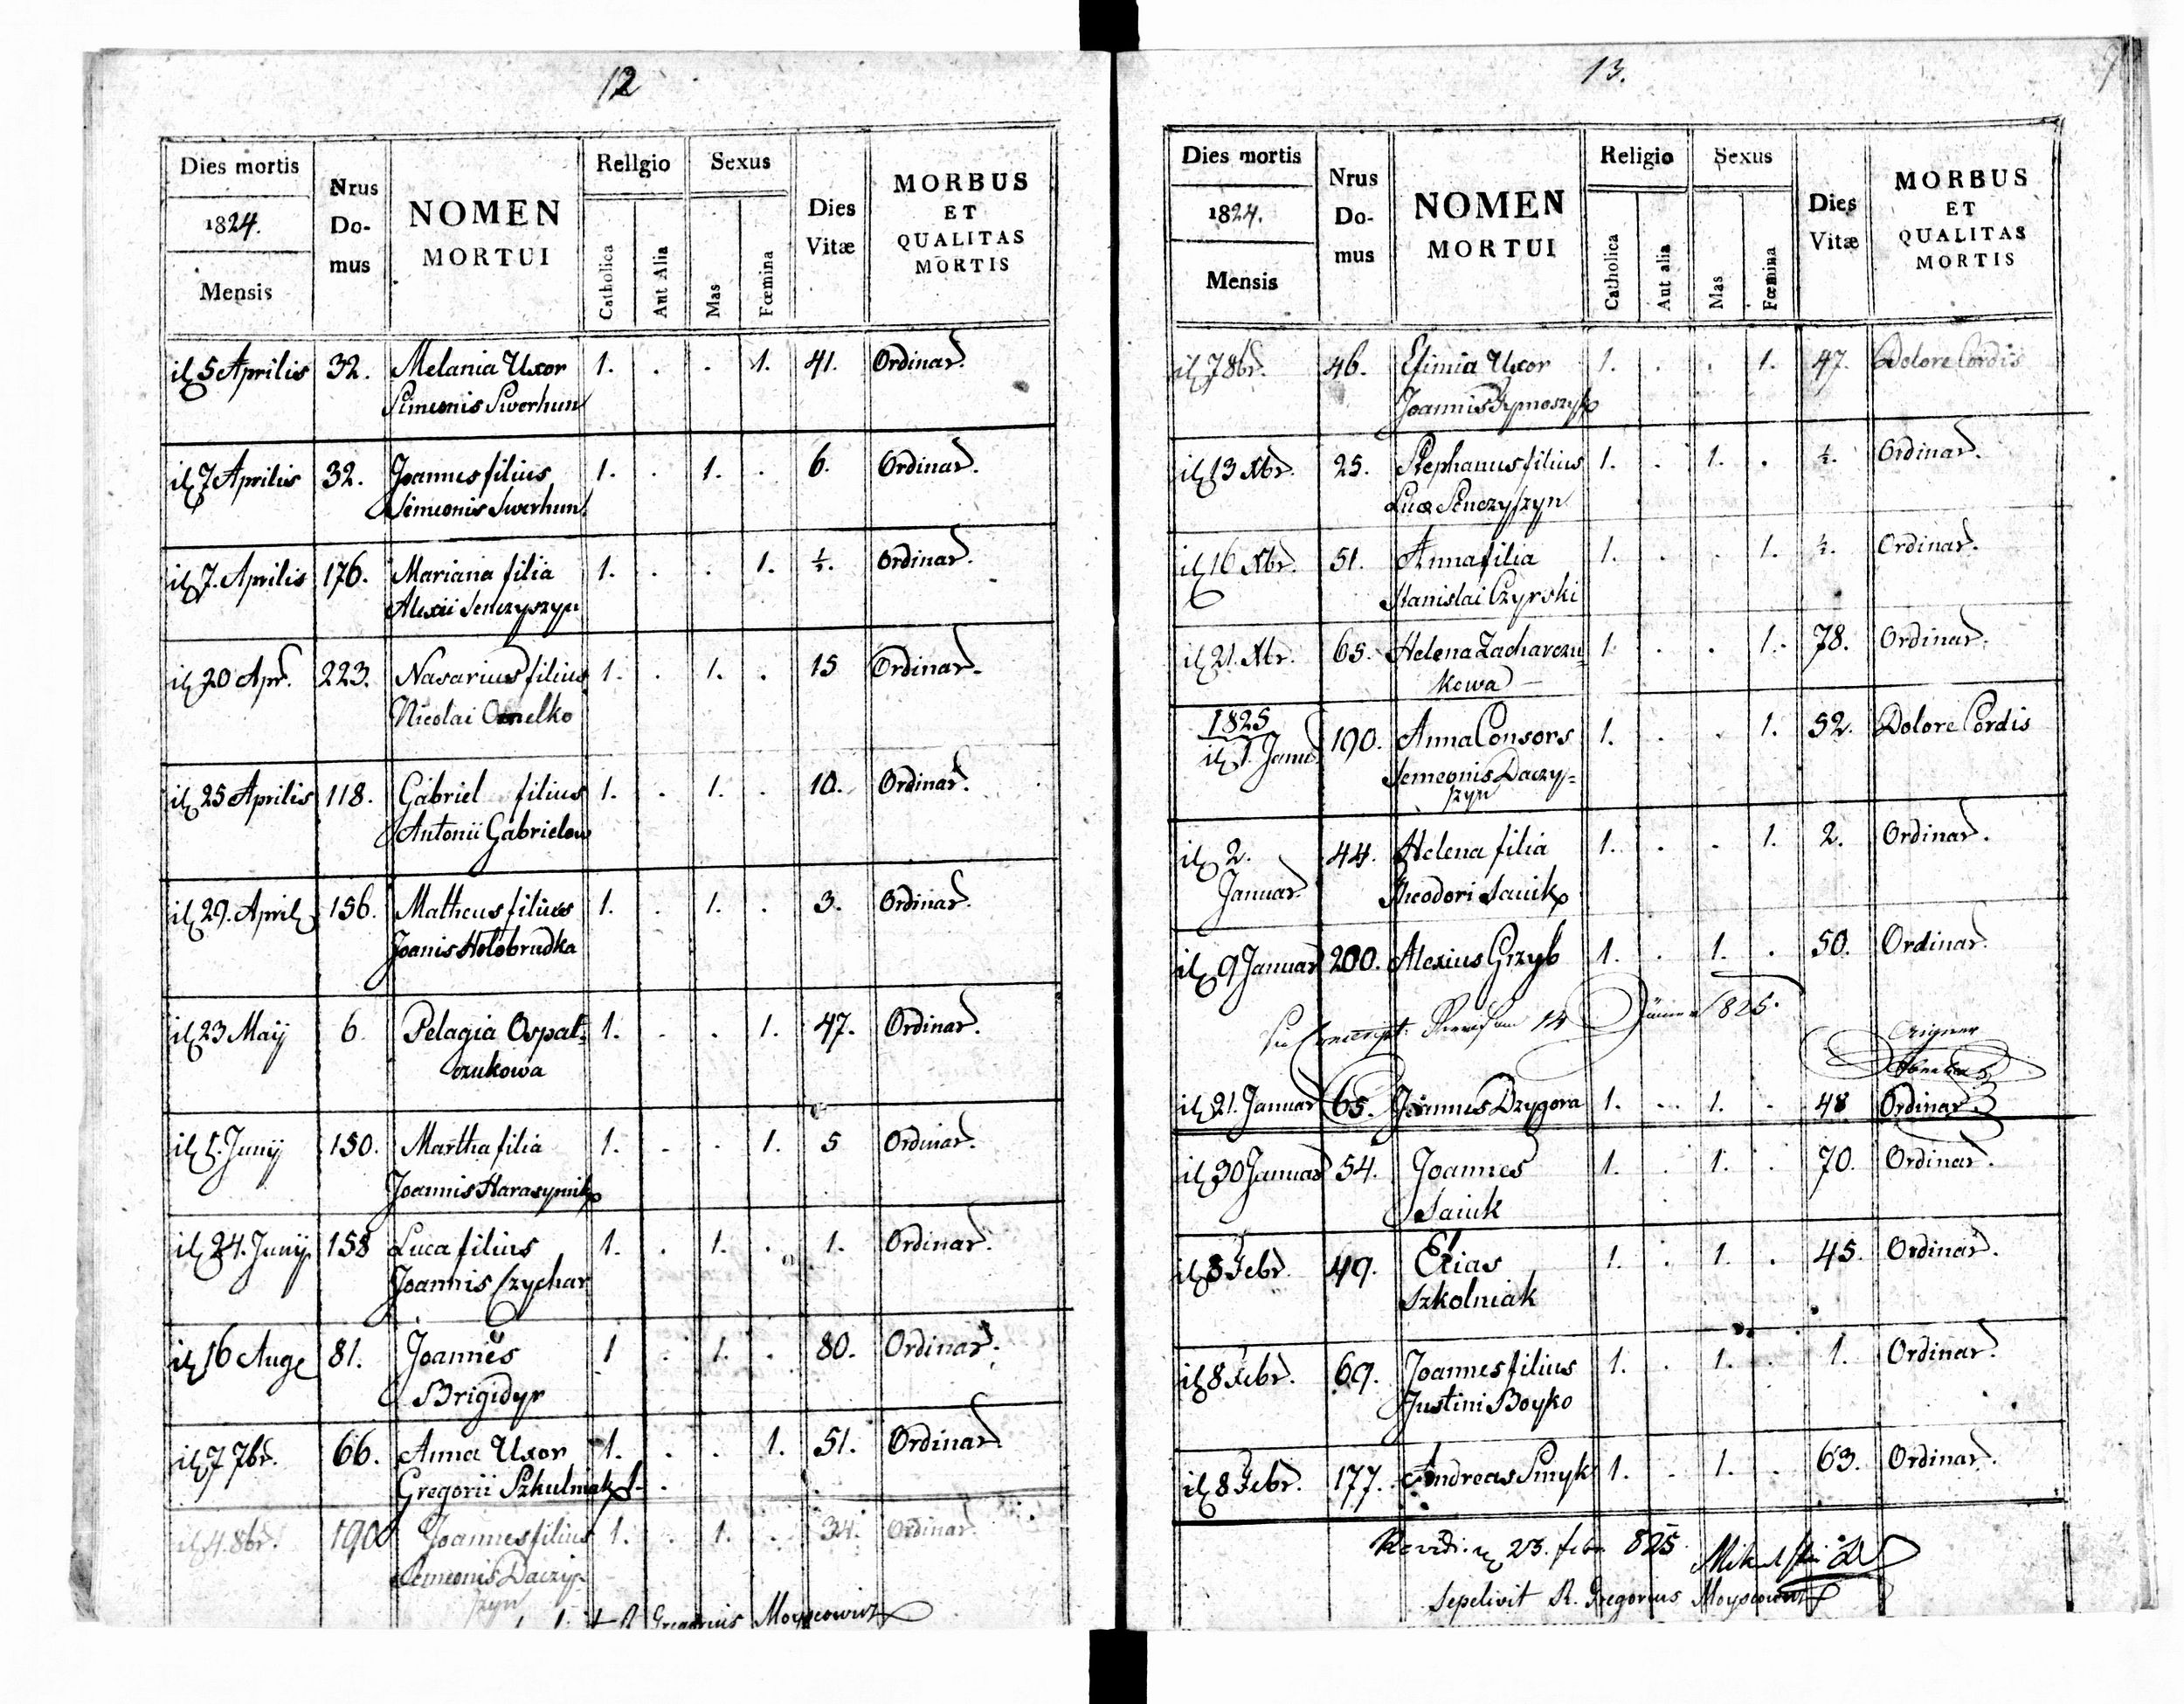 12
Dies mortis
1824.
Mensis
Nrus
Do-
mus
NOMEN
MORTUI
Religio
Catholica
Aut Alia
Sexus
Mas
Fœmina
Dies
Vitæ
MORBUS
ET
QUALITAS
MORTIS
5 Aprilis 32. Melania Uxor 1. . . 1. 41. Ordinar.
Simeonis Swerhun
7 Aprilis 32. Joannes filius 1. . 1. . 6. Ordinar.
Simeonis Swerhun
7. Aprilis 176. Mariana filia 1. . . 1. ½. Ordinar.
Alexii Senczyszyn
20 Apr. 223. Nasarius filius 1. . 1. . 15 Ordinar.
Nicolai Omelko
25 Aprilis 118. Gabriel filius 1. . 1. . 10. Ordinar.
Antonii Gabrielow
29. April 156. Matheus filius 1. . 1. . 3. Ordinar.
Joanis Holobrudka
23 Maij 6. Pelagia Ospal= 1. . . 1. 47. Ordinar.
czukowa
1. Junij 150. Martha filia 1. . . 1. 5 Ordinar.
Joannis Harasymik
24. Junij 158 Luca filius 1. . 1. . 1. Ordinar.
Joannis Czychar
16 Aug 81. Joannes 1 . 1. . 80. Ordinar.
Brigidyr
7 7br. 66. Anna Uxor 1. . . 1. 51. Ordinar.
Gregorii Szkulniak
4. 8br. 190 Joannes filius 1. . 1. . 34. Ordinar.
Semeonis Daczy-
szyn
R. Gregorius Moyseowicz
13.
Dies mortis
1824.
Mensis
Nrus
Do-
mus
NOMEN
MORTUI
Religio
Catholica
Aut alia
Sexus
Mas
Fœmina
Dies
Vitæ
MORBUS
ET
QUALITAS
MORTIS
7 8br. 46. Efimia Uxor 1. . . 1. 47. Dolore Cordis
Joannis
13 Xbr. 25. Stephanus filius 1. . 1. . ½. Ordinar.
Lucæ Senczyszyn
16 Xbr. 51. Anna filia 1. . . 1. ½. Ordinar.
Stanislai Czyrski
21. Xbr. 65. Helena Zacharczu= 1. . . 1. 78. Ordinar.
kowa
1825
1. Janu 190. Anna Consors 1. . . 1. 52. Dolore Cordis
Semeonis Daczy-
szyn
2. 44. Helena filia 1. . . 1. 2. Ordinar.
Januar. Theodori Sauik
9 Januar 200. Alexius Grzyb 1. . 1. . 50. Ordinar.
14 Jänner 1825.
21. Januar 65. Joannes Dzygora 1. . 1. . 48 Ordinar
30 Januar 54. Joannes 1. . 1. . 70. Ordinar.
Sauik
8 Febr. 49. Elias 1. . 1. . 45. Ordinar.
Szkolniak
8 Febr. 69. Joannes filius 1. . 1. . 1. Ordinar.
Justini Boyko
8 Febr. 177. Andreas Smyk 1. . 1. . 63. Ordinar.
23. febr. 825.
Sepelivit R. Gregorius Moyseowicz